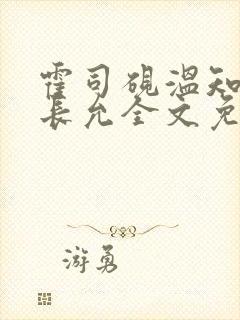 霍司砚温知
长允全文免
游勇